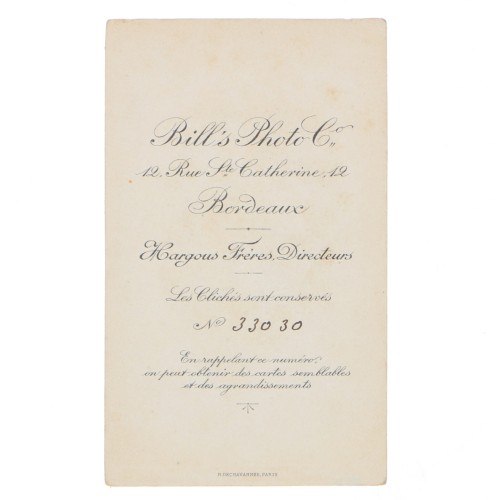 Bill's Photo Co.
12, Rue Ste Catherine, 12
Bordeaux
Hargous Frères, Directeurs
Les Clichés sont conservés
No 33030
En rappelant ce numéro,
on peut obtenir des cartes semblables
et des agrandissements